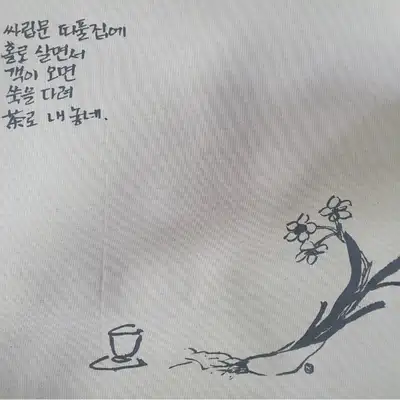 싸립문 띠풀집에
홀로 살면서
객이 오면
쑥을 다려
茶로 내놓네.